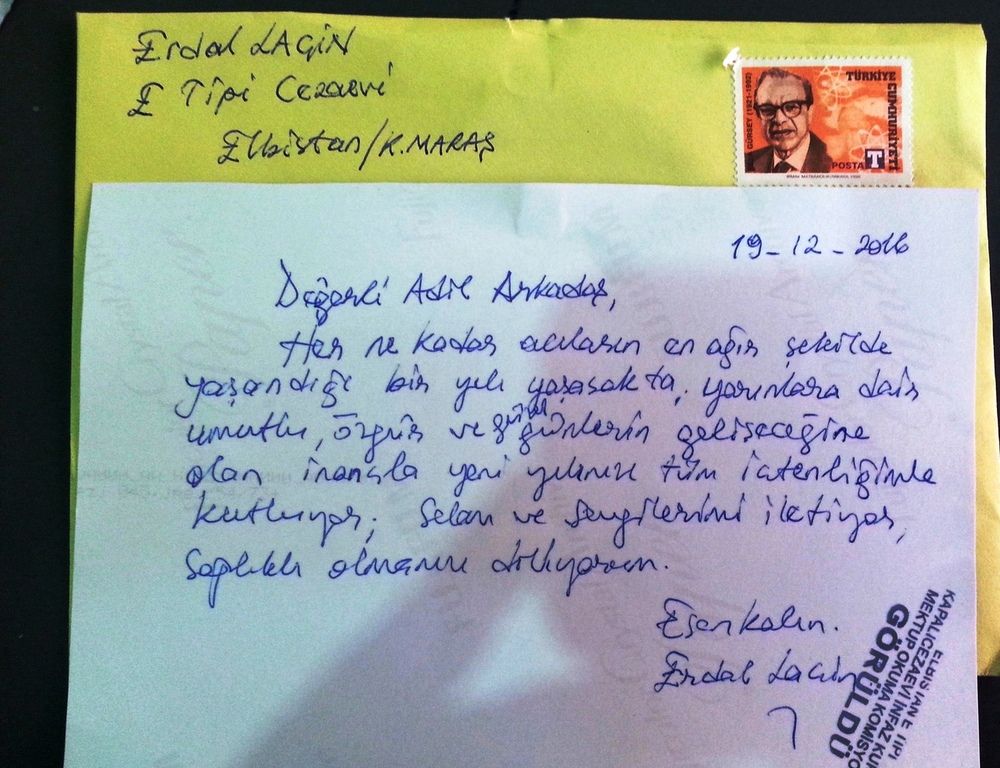 Erdal LAÇİN
E Tipi Cezaevi
Elbistan/K.MARAŞ
GÜRSEY (1921-1992)
TÜRKİYE
CUMHURİYETİ
POSTA T
19-12-2016
Değerli Adil Arkadaş,
Her ne kadar acıların en ağır şekilde
yaşandığı bir yılı yaşasakta, yarınlara dair
umutlu, özgür ve güzel günlerin gelişeceğine
olan inançla yeni yılınızı tüm içtenliğimle
kutluyor, Selam ve Sevgilerimi iletiyor,
Sağlıklı olmanızı diliyorum.
Esen kalın.
Erdal Laçin
ELBİSTAN E TİPİ
KAPALI CEZAEVİ İNFAZ KUR
MEKTUP OKUMA KOMİSYO
GÖRÜLDÜ